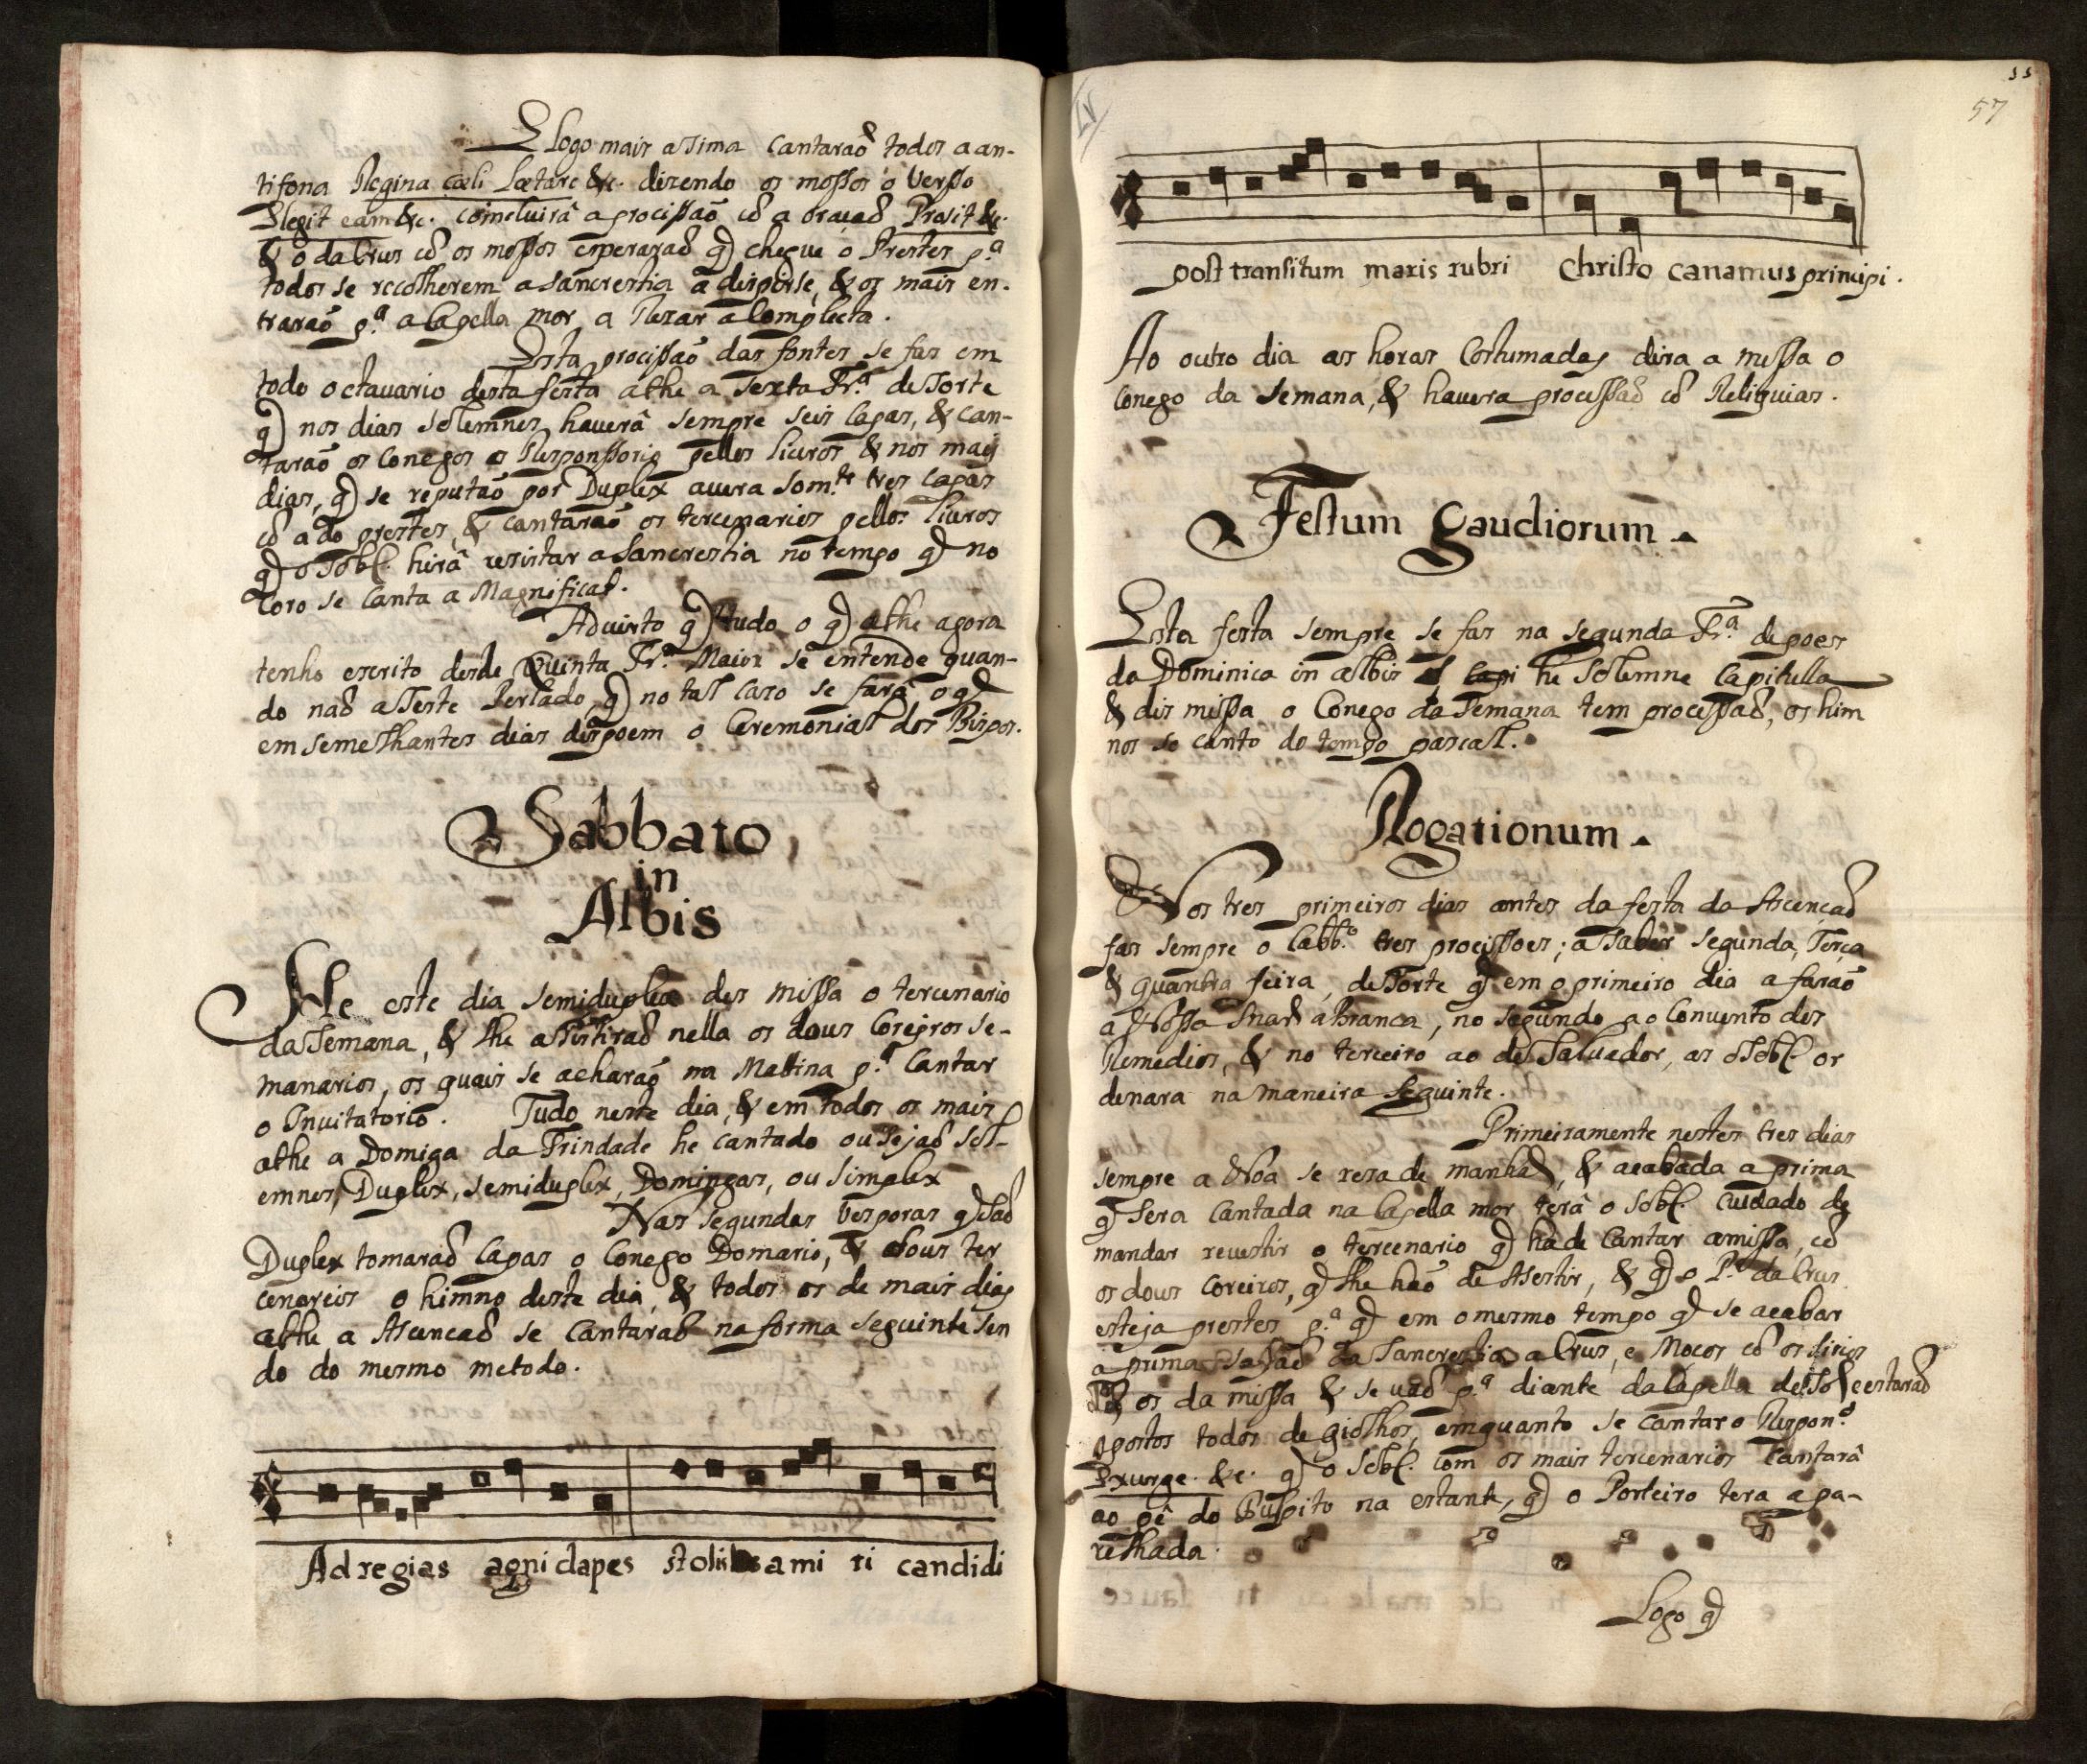 E logo mais assima cantaraõ todos a an-
tifona Regina cæli Lætare &c. dizendo os mossos o Versso
Elegit eam &c. comcluirâ a procissaõ cõ a oraçaõ Prosit &c.
& o da Crus cõ os mossos esperaraõ q̃ chegue o Prestes p.ª
todos se recolherem a sancrestia a dispirse, & os mais en-
traraõ p.ª a Capella mor a Rezar a Complecta.
Esta procissaõ das fontes se fas em
todo octauario desta festa athe a Sexta Fr.ª de sorte
q̃ nos dias solemnes, hauerâ sempre seis Capas, & can-
taraõ os Conegos o Responssorio pellos liuros & nos mais
dias, q̃ se reputaõ por Duplex auera som.te tres Capas
cõ a do prestes, & cantaraõ os tercenarios pellos liuros
q̃ o Sobc̃. hirâ resistar a Sancrestia no tempo q̃ no
Coro se Canta a Magnificat.
Aduirto q̃ tudo o q̃ athe agora
tenho escrito desde Quinta Fr.ª Maior se entende quan-
do naõ asseste Perlado, q̃ no tal Caso se farâ o q̃
em semelhantes dias dispoem o Ceremonial dos Bispos.
Sabbato,
in
Albis
He este dia semiduplex des missa o tercenario
da Semana, & lhe assistiraõ nella os dous Coreyros se-
manarios, os quais se acharaõ na Matina p.ª Cantar
o Inuitatorio. Tudo neste dia, & em todos os mais
athe a Dominga da Trindade he cantado ou sejaõ sol-
emnes, Duplex, semiduplex, Domingas, ou simplex
Nas segundas Vesporas q̃ saõ
Duplex tomaraõ Capas o Conego Domario, & dous ter
cenareios o himno deste dia, & todos os de mais dias
athe a Ascencaõ se Cantaraõ na forma seguinte sen
do do mesmo metodo.
Ad regias agni dapes stolis ami ti candidi
55
57
LV
post transitum maris rubri Christo canamus principi.
Ao outro dia as horas Costumadas dira a missa o
Conego da Semana, & hauera procissaõ cõ Reliquias.
Festum Gaudiorum
Esta festa sempre se fas na segunda Fr.ª depoes
da Dominica in albis he Solemne Capitulla
& dis missa o Conego da Semana tem procissaõ, os him
nos so canto do tempo pascal.
Rogationum
Nos tres primeiros dias antes da festa da Ascençaõ
fas sempre o Cabb.º tres procissoes; a saber segunda, Terça
& quantra feira, de sorte q̃ em o primeiro dia a faraõ
a Nossa Snarã a Branca, no segundo ao Convento dos
Remedios, & no terceiro ao de Saluador, as o Sobc̃. or
denara na maneira seguinte.
Primeiramente nestes tres dias
sempre a Noa se resa de manhaã, & acabada a prima
q̃ sera Cantada na Capella mor terâ o Sobc̃. Cuidado de
mandar reuestir o tercenario q̃ ha de Cantar a missa, cõ
os dous Coreiros, q̃ lhe haõ de Asestir, & q̃ o P.e da Crus
esteja prestes p.ª q̃ em o mesmo tempo q̃ se acabar
a prima saaõ da Sancrestia a Crus, e Mocos cõ os sirios
& os da missa & se uaõ p.ª diante da Capella de estaraõ
postos todos de giolhos, emquanto se cantar o Respon.º
Exurge. &c. q̃ o Sobc̃. com os mais tercenarios Cantarâ
ao pê do Pulpito na estante, q̃ o Porteiro tera apa-
relhada.
Logo q̃